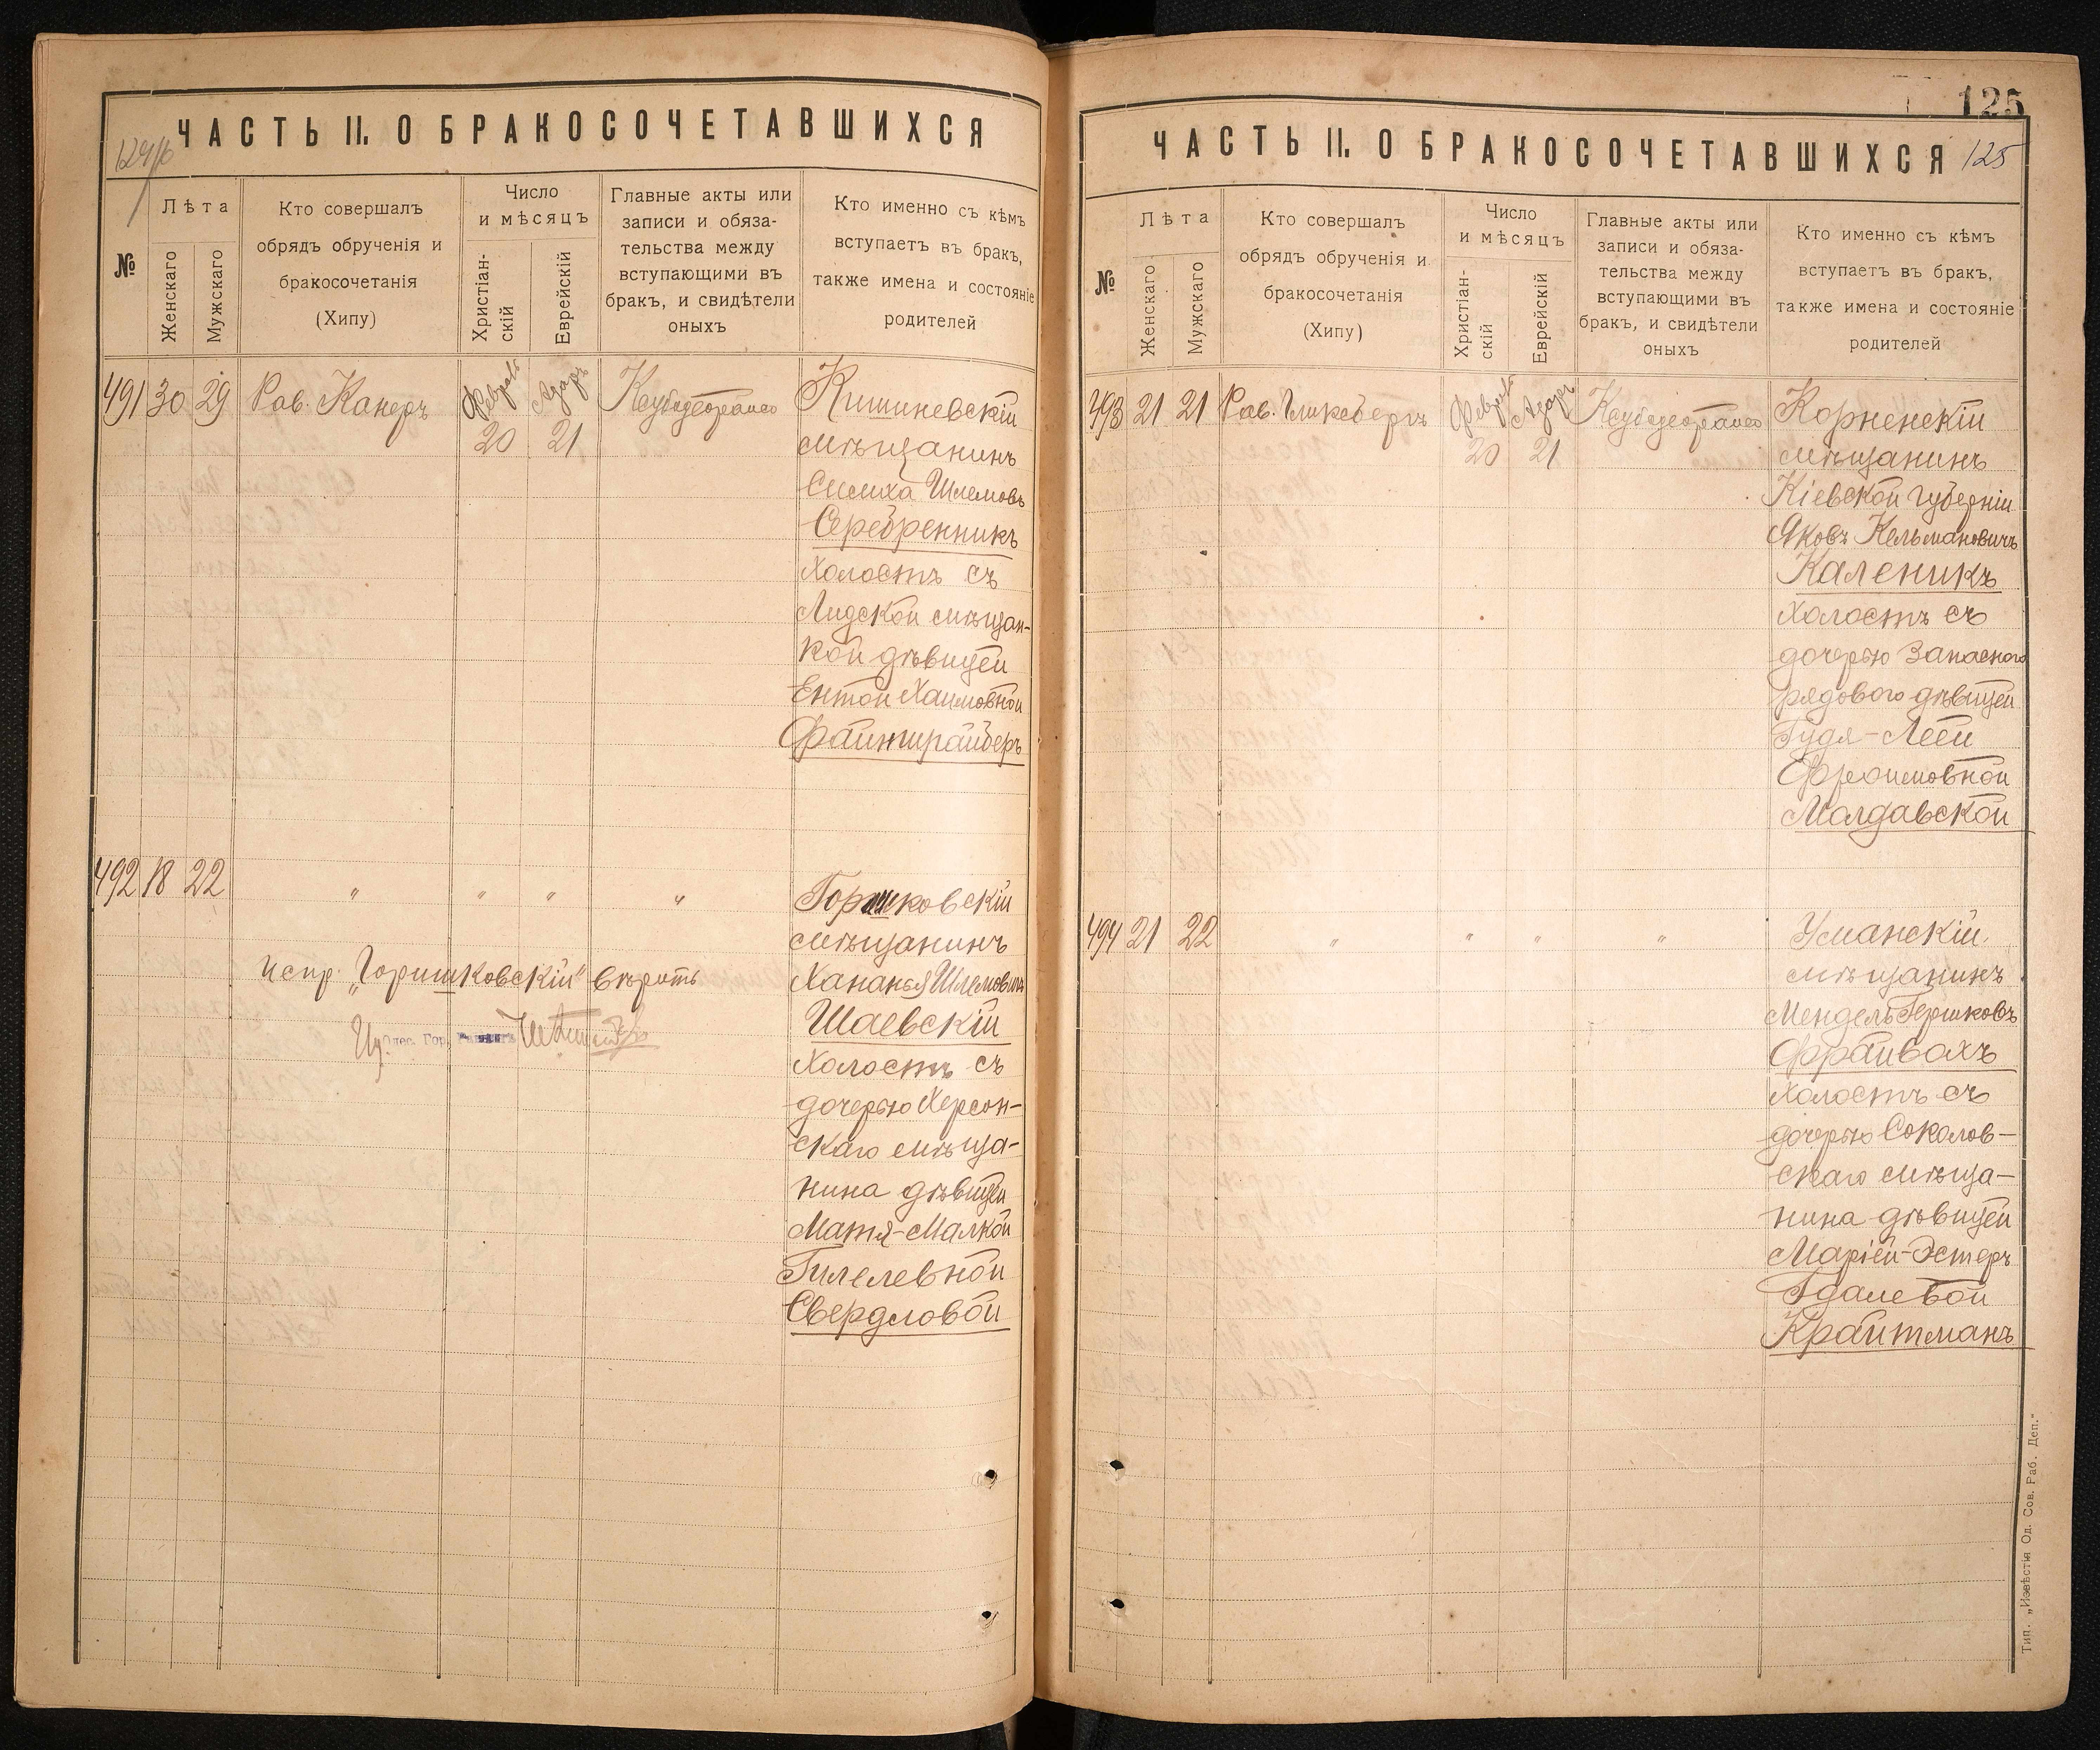 124 об
ЧАСТЬ II. О БРАКОСОЧЕТАВШИХСЯ
№
Лѣта
Женскаго
Мужскаго
Кто совершалъ
обрядъ обрученія и
бракосочетанія
(Хипу)
Число
и мѣсяцъ
Христіан-
скій
Еврейскій
Главные акты или
записи и обяза-
тельства между
вступающими въ
бракъ, и свидѣтели
оныхъ
Кто именно съ кѣмъ
вступаетъ въ бракъ,
также имена и состояніе
родителей
491 30 29 Рав. Канеръ
Февраль 20
Адаръ 21
Кишиневскій
мѣщанинъ
Симха Шлемовъ
Серебренникъ
холостъ съ
Лидской мѣщан-
кой дѣвицей
Ентой Хаимовной
Файнтрайберъ
492 18 22 " " " "
Горишковскій
мѣщанинъ
Хананья Шлемовичъ
Шаевскій
холостъ съ
дочерью Херсон-
скаго мѣща-
нина дѣвицей
Матя-Малкой
Гилелевной
Свердловой
испр. "Горишковскій" вѣрить
Одес. Гор. Раввинъ
125
ЧАСТЬ II. О БРАКОСОЧЕТАВШИХСЯ
125
№
Лѣта
Женскаго
Мужскаго
Кто совершалъ
обрядъ обрученія и
бракосочетанія
(Хипу)
Число
и мѣсяцъ
Христіан-
скій
Еврейскій
Главные акты или
записи и обяза-
тельства между
вступающими въ
бракъ, и свидѣтели
оныхъ
Кто именно съ кѣмъ
вступаетъ въ бракъ,
также имена и состояніе
родителей
493 21 21 Рав. Гликсбергъ
Февраль 20
Адаръ 21
Корненскій
мѣщанинъ
Кіевской губерніи
Яковъ Кельмановичъ
Каленикъ
холостъ съ
дочерью запасного
рядового дѣвицей
Гудя-Леей
Фроимовной
Молдавской
494 21 22 " " " "
Уманскій
мѣщанинъ
Мендель Гершковъ
Фрайвахъ
холостъ съ
дочерью Соколов-
скаго мѣща-
нина дѣвицей
Маріей-Эстеръ
Гдалевой
Крайтманъ
Тип. „Извѣстія Од. Сов. Раб. Деп."